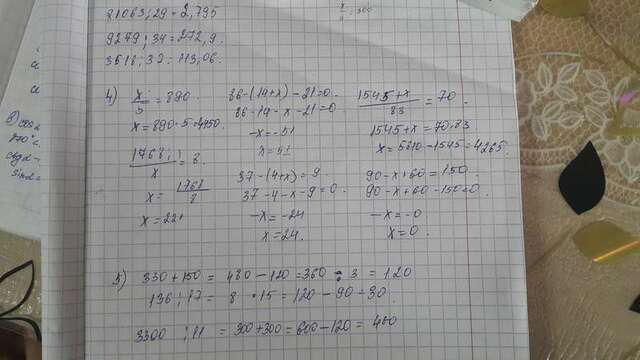 21063 : 29 = 2,795
9279 : 34 = 272,9
3618 : 32 = 113,06.
4) x/5 = 890 86-(14+x)-21=0. 1545+x/83 = 70
x = 890·5=4450 86-14-x-21=0
-x=-51 1545+x=70.83
1768/x = 8. x = 51 x=5810-1545=4265.
37-(4+x) = 9 90-x+60=150
x = 1768/8 37-4-x-9=0. 90-x+60-150=0.
x = 221 -x=-24 -x=-0
x=24. x=0.
5) 330+150 = 480-120=360 : 3 = 120
136 : 17 = 8 · 15 = 120 - 90 = 30
3300 : 11 = 300+300=600-120= 480